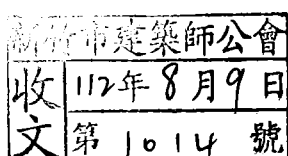 新竹市建築師公會
收文
112年8月9日
第1014號